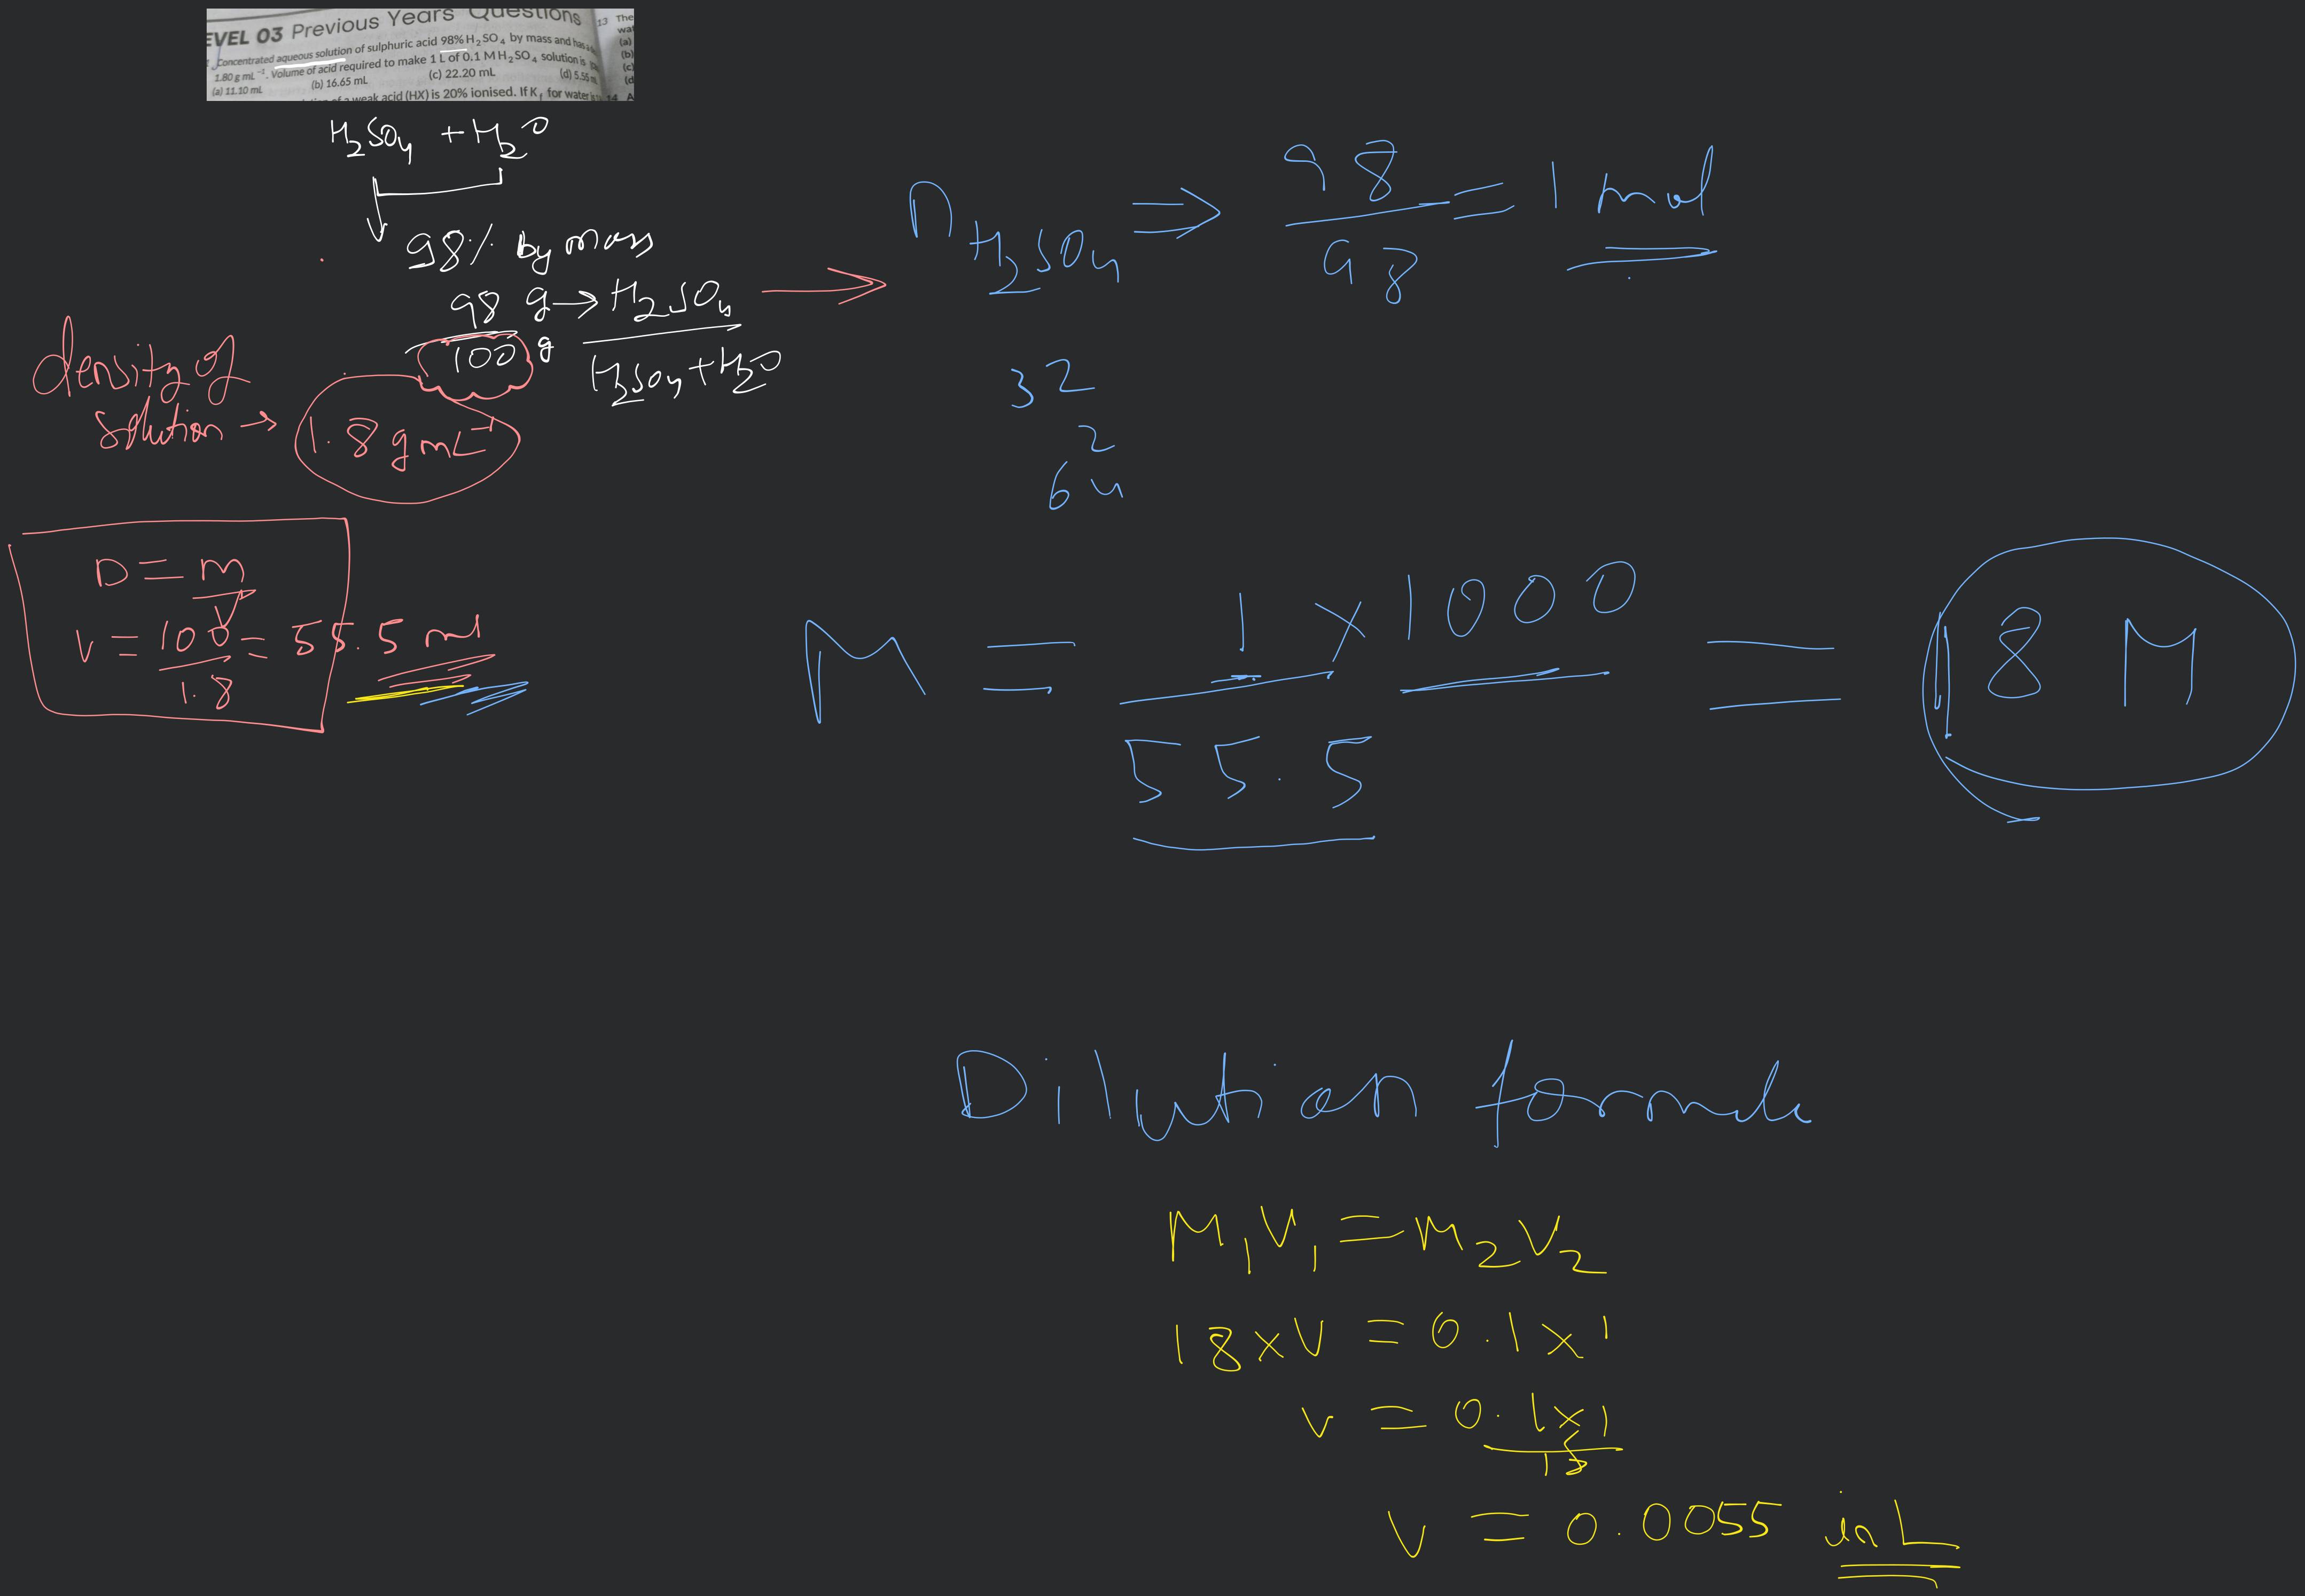 EVEL 03 Previous Years' Questions
Concentrated aqueous solution of sulphuric acid 98% H2SO4 by mass and has a
1.80 g mL⁻¹. Volume of acid required to make 1 L of 0.1 M H2SO4 solution is
(a) 11.10 mL (b) 16.65 mL (c) 22.20 mL (d) 5.55 m
of a weak acid (HX) is 20% ionised. If Kf for water is
13 The
wat
(a)
(b)
(c)
(d
14 A
H2SO4 + H2O
98% by mass
98 g → H2SO4
100 g H2SO4 + H2O
density of
solution → 1.8 g mL⁻¹
D = m
V
V = 100 = 55.5 ml
1.8
nH2SO4 ⇒ 98 = 1 mol
98
32
2
64
M = 1 × 1000 = 18 M
55.5
Dilution formula
M1V1 = M2V2
18 × V = 0.1 × 1
V = 0.1 × 1
18
V = 0.0055 in L